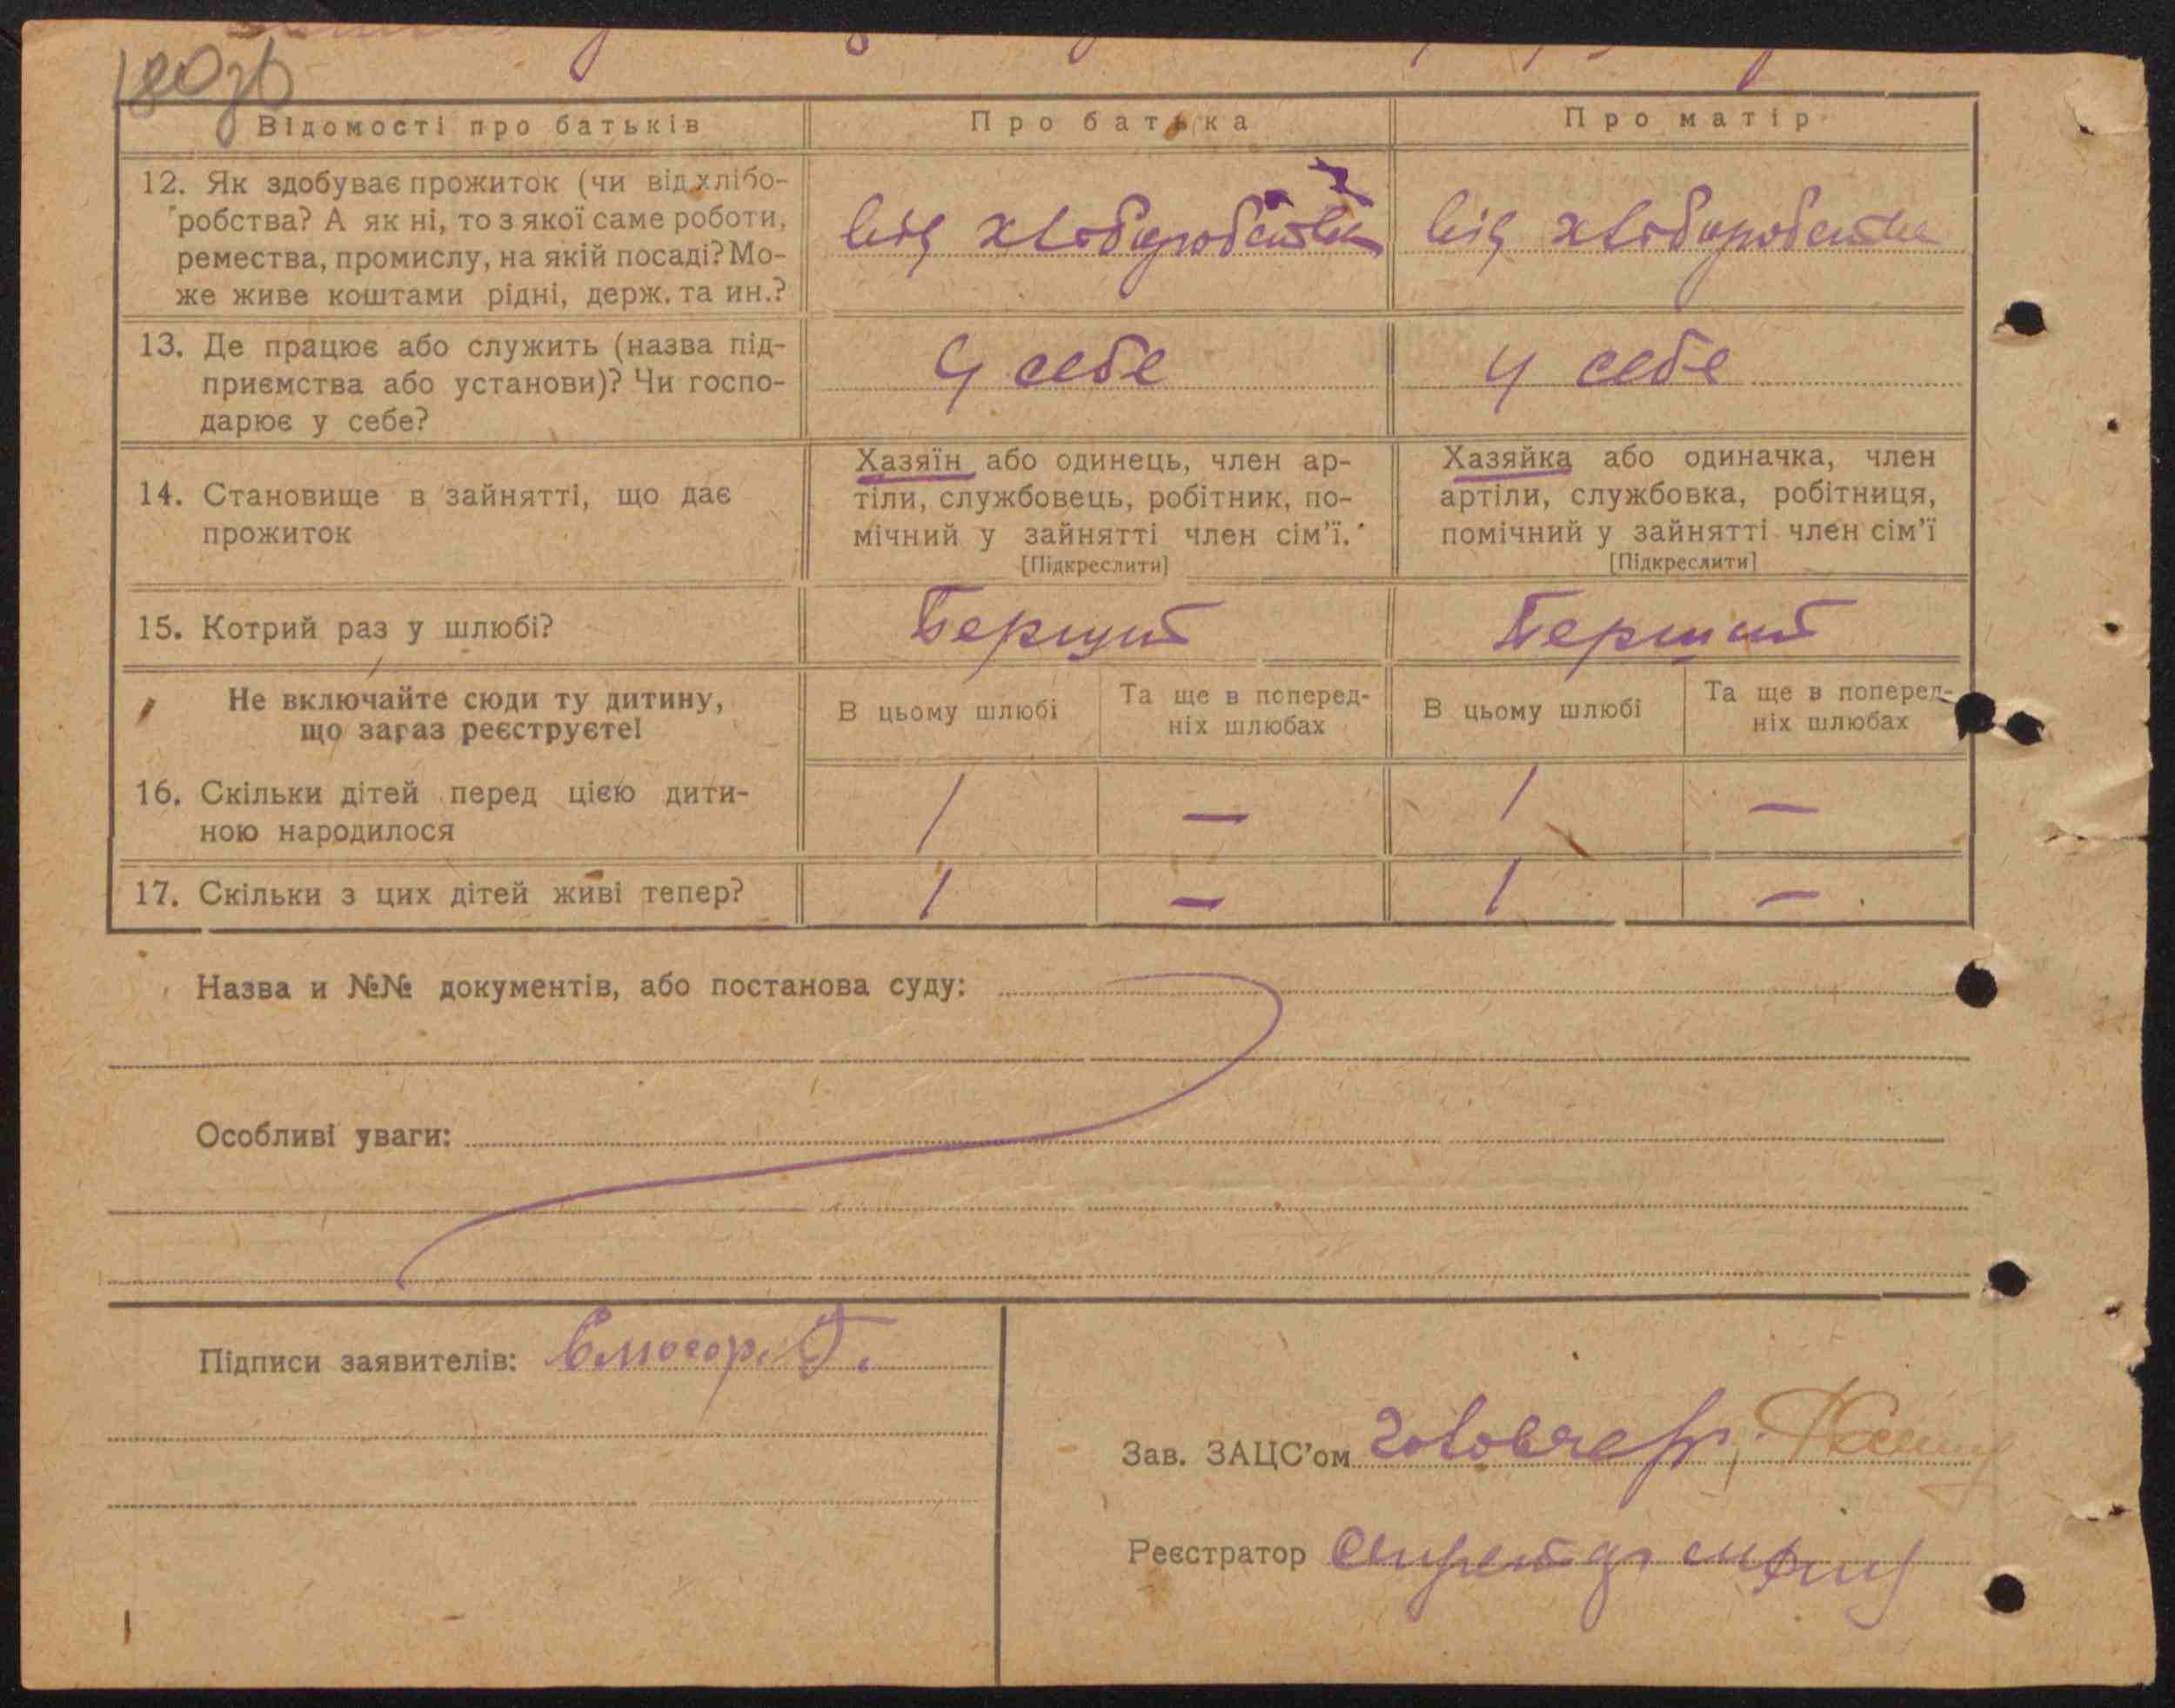 180зв
Відомості про батьків
Про батька
Про матір
12. Як здобуває прожиток (чи від хлібо-
робства? А як ні, то з якої саме роботи,
ремества, промислу, на якій посаді? Мо-
же живе коштами рідні, держ. та ин.?
від хліборобства
від хліборобства
13. Де працює або служить (назва під-
приємства або установи)? Чи госпо-
дарює у себе?
У себе
У себе
14. Становище в зайнятті, що дає
прожиток
Хазяїн або одинець, член ар-
тіли, службовець, робітник, по-
мічний у зайнятті член сім'ї.
[Підкреслити]
Хазяйка або одиначка, член
артіли, службовка, робітниця,
помічний у зайнятті член сім'ї
[Підкреслити]
15. Котрий раз у шлюбі?
Перший
Перший
Не включайте сюди ту дитину,
що зараз реєструєте!
В цьому шлюбі
Та ще в поперед-
ніх шлюбах
В цьому шлюбі
Та ще в поперед-
ніх шлюбах
16. Скільки дітей перед цією дити-
ною народилося
1
—
1
—
17. Скільки з цих дітей живі тепер?
1
—
1
—
Назва и №№ документів, або постанова суду:
Особливі уваги:
Підписи заявителів:
Зав. ЗАЦС'ом
Реєстратор